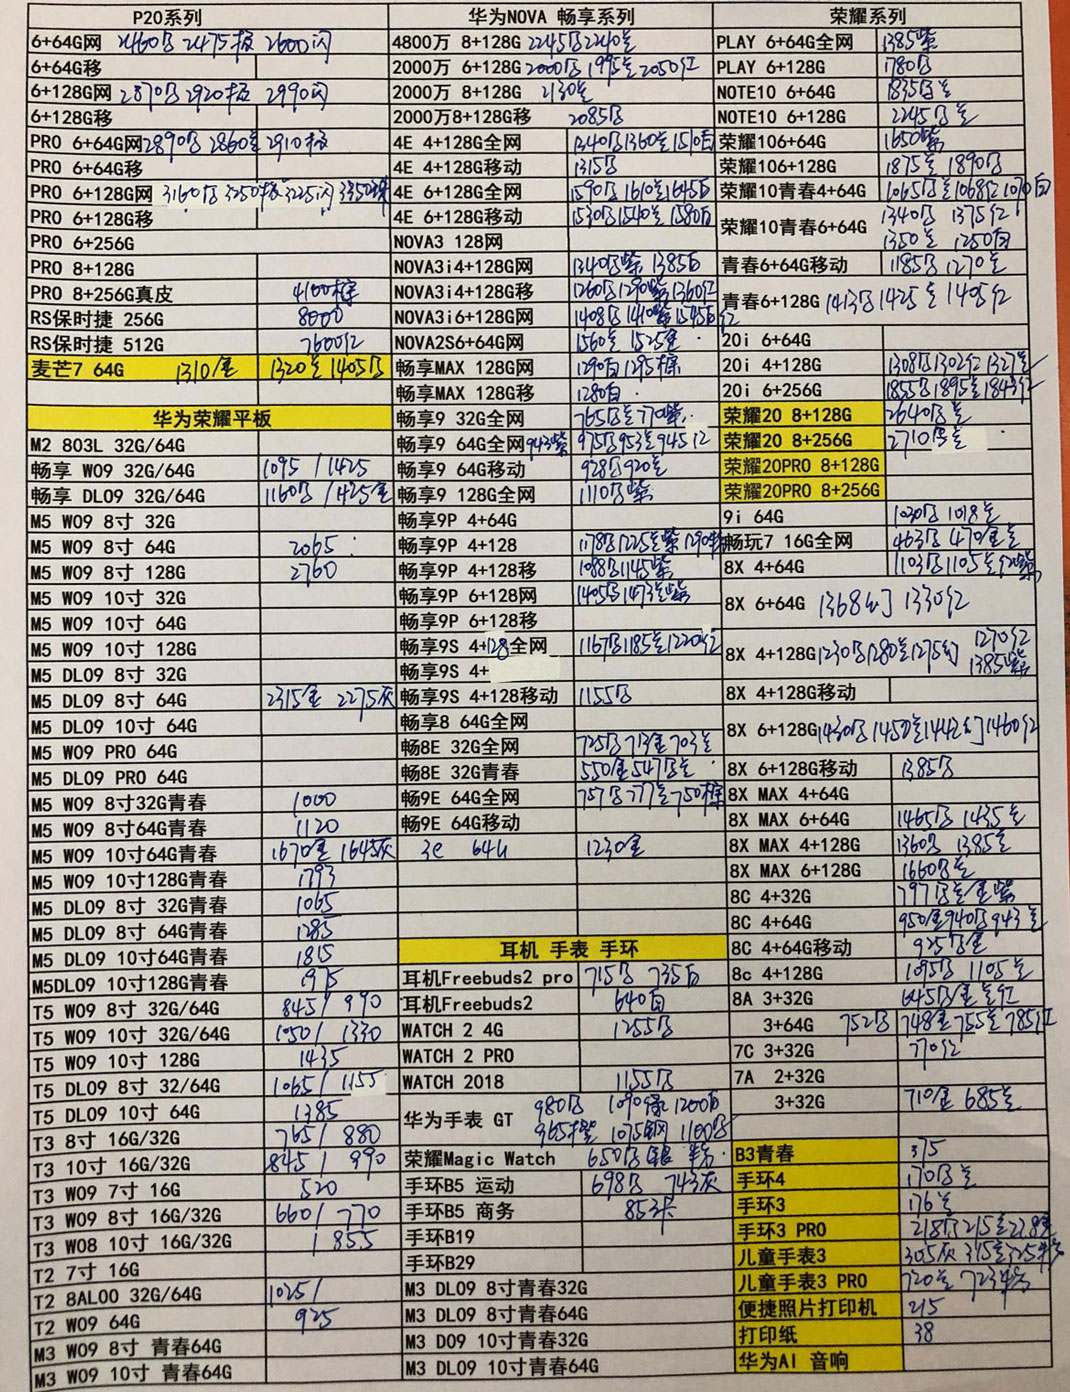 P20系列 华为NOVA 畅享系列 荣耀系列
6+64G网 2460 2475 2600闪 4800万 8+128G 2245 2240 PLAY 6+64G全网 1385紫
6+64G移 2000万 6+128G 2000 1995 2050红 PLAY 6+128G 1780
6+128G网 2870 2920 2990闪 2000万 8+128G 2130 NOTE10 6+64G 1835
6+128G移 2000万8+128G移 2085 NOTE10 6+128G 2245
PRO 6+64G网 2890 2860 2910 4E 4+128G全网 1340 1360 1510白 荣耀106+64G 1650紫
PRO 6+64G移 4E 4+128G移动 1315 荣耀106+128G 1875 1890
PRO 6+128G网 3160 3250 3225闪 3350 4E 6+128G全网 1590 1610 1645白 荣耀10青春4+64G 1065 1068红 1070白
PRO 6+128G移 4E 6+128G移动 1530 1540 1580白 荣耀10青春6+64G 1340 1375红
1350 1250白
PRO 6+256G NOVA3 128网
PRO 8+128G NOVA3i4+128G网 1340 紫 1385白 青春6+64G移动 1185 1270
PRO 8+256G真皮 4100棕 NOVA3i4+128G移 1260 1290紫 1360红 青春6+128G 1413 1425 1405红
RS保时捷 256G 8000 NOVA3i6+128G网 1408 1410紫 1545白 红
RS保时捷 512G 7600红 NOVA2S6+64G网 1560 1525金 20i 6+64G
麦芒7 64G 1310金 1320 1405 畅享MAX 128G网 1290白 1295棕 20i 4+128G 1308 1302红 1327
畅享MAX 128G移 1280白 20i 6+256G 1855 1895 1843红
华为荣耀平板 畅享9 32G全网 765 770紫 荣耀20 8+128G 2640
M2 803L 32G/64G 畅享9 64G全网 943紫 975 953 945红 荣耀20 8+256G 2710
畅享 W09 32G/64G 1095/1425 畅享9 64G移动 928 920 荣耀20PRO 8+128G
畅享 DL09 32G/64G 1160/1425金 畅享9 128G全网 1110紫 荣耀20PRO 8+256G
M5 W09 8寸 32G 畅享9P 4+64G 9i 64G 1030 1018
M5 W09 8寸 64G 2065 畅享9P 4+128 1178 1225 紫 1290 畅玩7 16G全网 463 470金
M5 W09 8寸 128G 2760 畅享9P 4+128移 1088 1145紫 8X 4+64G 1103 1105
M5 W09 10寸 32G 畅享9P 6+128网 1405 1473紫 8X 6+64G 1368幻 1330红
M5 W09 10寸 64G 畅享9P 6+128移
M5 W09 10寸 128G 畅享9S 4+128全网 1167 1185 1220红 8X 4+128G 1230 1280 1275幻 1270红
1385紫
M5 DL09 8寸 32G 畅享9S 4+
M5 DL09 8寸 64G 2315金 2275灰 畅享9S 4+128移动 1155 8X 4+128G移动
M5 DL09 10寸 64G 畅享8 64G全网 8X 6+128G 1430 1450 1442幻 1460红
M5 W09 PRO 64G 畅8E 32G全网 725 713金 703
M5 DL09 PRO 64G 畅8E 32G青春 550金 547 8X 6+128G移动 1385
M5 W09 8寸32G青春 1000 畅9E 64G全网 757 777 750棕 8X MAX 4+64G
M5 W09 8寸64G青春 1120 畅9E 64G移动 8X MAX 6+64G 1465 1435
M5 W09 10寸64G青春 1670金 1645灰 3e 64G 1230金 8X MAX 4+128G 1360 1385
M5 W09 10寸128G青春 1793 8X MAX 6+128G 1660
M5 DL09 8寸 32G青春 1065 8C 4+32G 797 金 紫
M5 DL09 8寸 64G青春 1285 8C 4+64G 950金 940 943
M5 DL09 10寸64G青春 1815 耳机 手表 手环 8C 4+64G移动 925 金
M5DL09 10寸128G青春 1975 耳机Freebuds2 pro 715 735白 8c 4+128G 1095 1105
T5 W09 8寸 32G/64G 845/990 耳机Freebuds2 640白 8A 3+32G 645 金 红
T5 W09 10寸 32G/64G 1050/1330 WATCH 2 4G 1255 3+64G 752 748金 755 785红
T5 W09 10寸 128G 1435 WATCH 2 PRO 7C 3+32G 770红
T5 DL09 8寸 32/64G 1065/1155 WATCH 2018 1155 7A 2+32G
T5 DL09 10寸 64G 1385 华为手表 GT 980 1090绿 1200白 3+32G 710金 685
T3 8寸 16G/32G 765/880 965橙 1075钢 1100
T3 10寸 16G/32G 845/990 荣耀Magic Watch 650 银 B3青春 375
T3 W09 7寸 16G 520 手环B5 运动 698 743灰 手环4 170
T3 W09 8寸 16G/32G 660/770 手环B5 商务 853 手环3 176
T3 W08 10寸 16G/32G /855 手环B19 手环3 PRO 218 215 228
T2 7寸 16G 手环B29 儿童手表3 305灰 315 325粉
T2 8AL00 32G/64G 1025/ M3 DL09 8寸青春32G 儿童手表3 PRO 720 723粉
T2 W09 64G 925 M3 DL09 8寸青春64G 便捷照片打印机 215
M3 W09 8寸 青春64G M3 D09 10寸青春32G 打印纸 38
M3 W09 10寸 青春64G M3 DL09 10寸青春64G 华为AI 音响